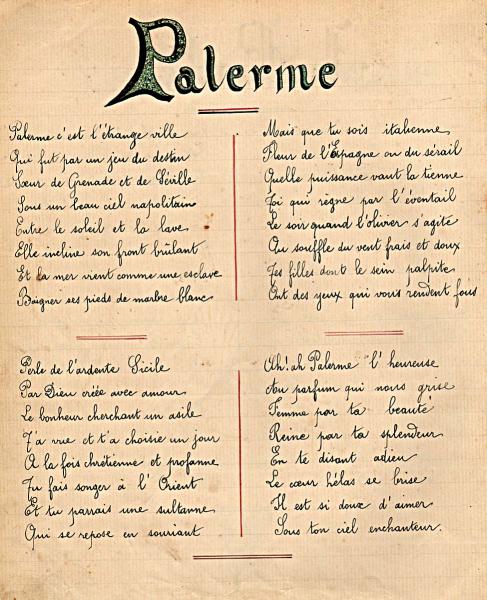 Palerme
Palerme c'est l'étrange ville
Qui fut par un jeu du destin
Sœur de Grenade et de Séville
Sous un beau ciel napolitain
Entre le soleil et la lave
Elle incline son front brûlant
Et la mer vient comme une esclave
Baigner ses pieds de marbre blanc
Perle de l'ardente Sicile
Par Dieu créée avec amour
Le bonheur cherchant un asile
T'a vue et t'a choisie un jour
A la fois chrétienne et profanne
Tu fais songer à l'Orient
Et tu parrais une sultanne
Qui se repose en souriant
Mais que tu sois italienne
Fleur de l'Espagne ou du sérail
Quelle puissance vaut la tienne
Toi qui règne par l'éventail
Le soir quand l'olivier s'agite
Au souffle du vent frais et doux
Tes filles dont le sein palpite
Ont des yeux qui vous rendent fous
Oh! ah Palerme l'heureuse
Au parfum qui nous grise
Femme par ta beauté
Reine par ta splendeur
En te disant adieu
Le cœur hélas se brise
Il est si doux d'aimer
Sous ton ciel enchanteur.